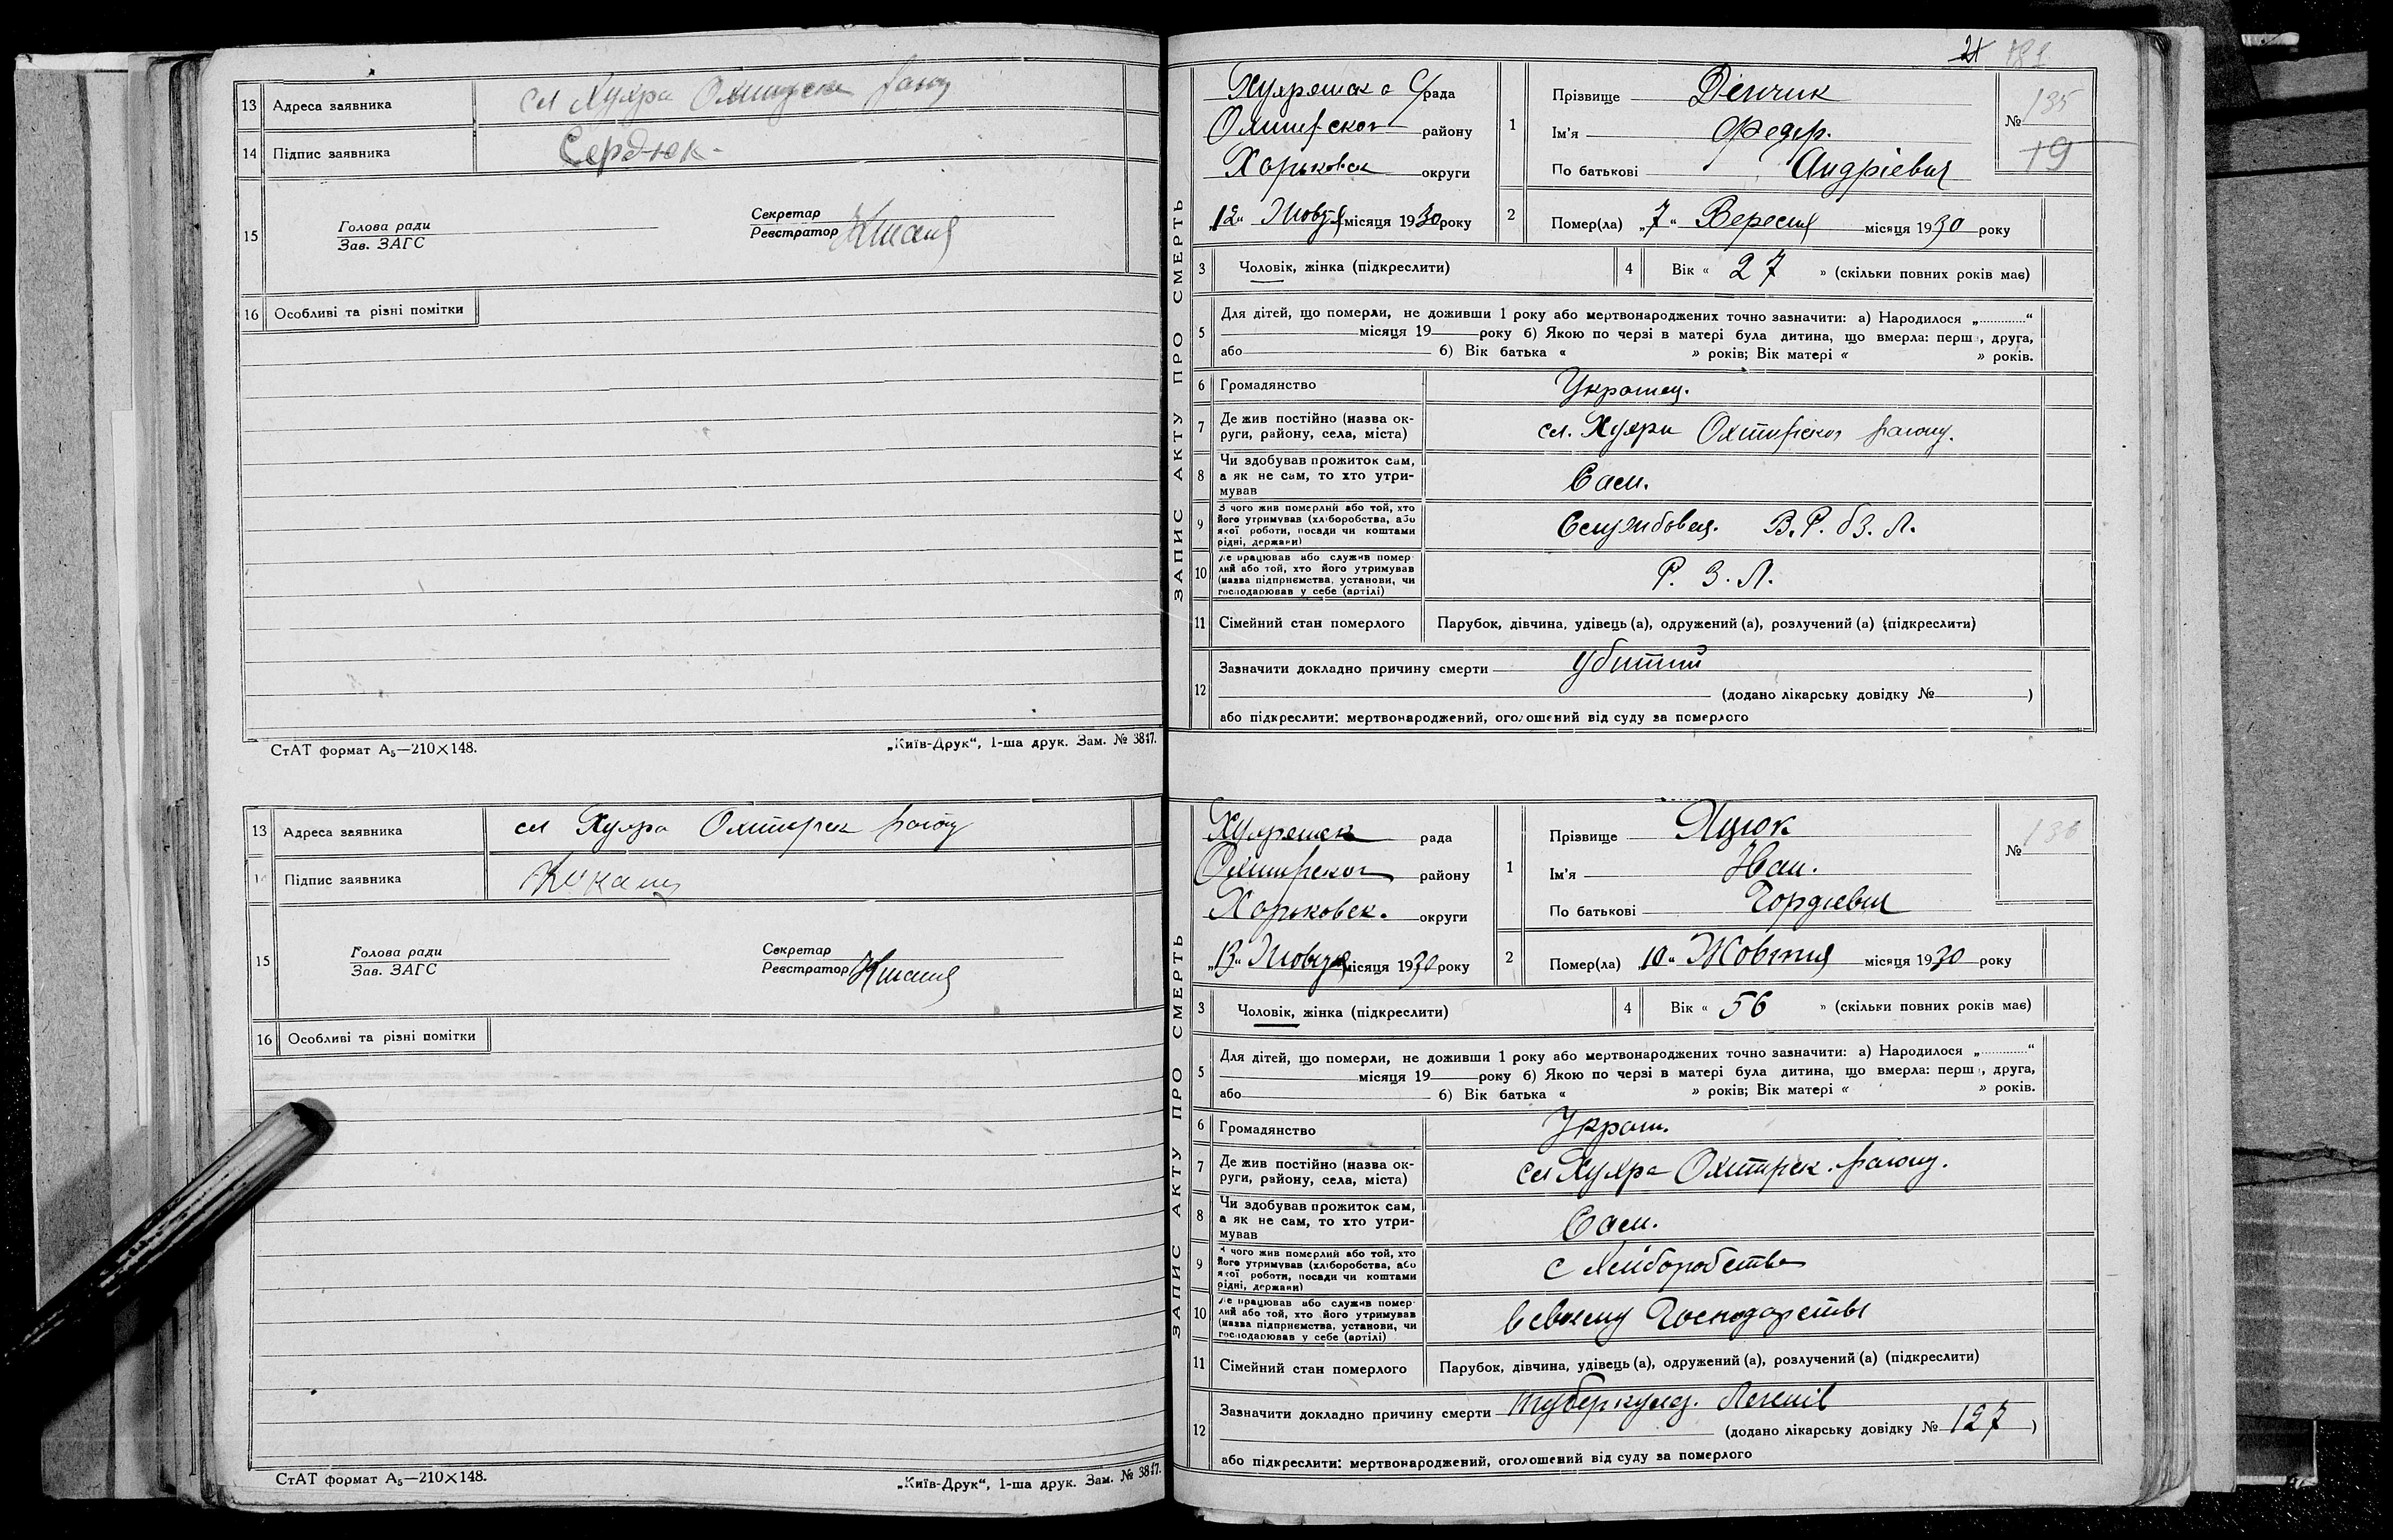 13 Адреса заявника сел Хухра Охтирск району
14 Підпис заявника Сердюк
15 Голова ради
Зав. ЗАГС
Секретар
Реєстратор
16 Особливі та різні помітки
СтАТ формат А₅—210×148.
„Київ-Друк“, 1-ша друк. Зам. № 3847.
13 Адреса заявника сел Хухра Охтирск району
Підпис заявника
15 Голова ради
Зав. ЗАГС
Секретар
Реєстратор
16 Особливі та різні помітки
СтАТ формат А₅—210×148.
„Київ-Друк“, 1-ша друк. Зам. № 3847.
21
ЗАПИС АКТУ ПРО СМЕРТЬ
рада
Охтирског району
Харьковск округи
„12“ Жовтня місяця 1930 року
1 Прізвище Дейчик
Ім'я Федір.
По батькові Андрієвич
№ 135
19
2 Помер(ла) „7“ Вересня місяця 1930 року
3 Чоловік, жінка (підкреслити)
4 Вік « 27 » (скільки повних років має)
5 Для дітей, що померли, не доживши 1 року або мертвонароджених точно зазначити: а) Народилося „............“
місяця 19 року б) Якою по черзі в матері була дитина, що вмерла: перша, друга,
або б) Вік батька « » років; Вік матері « » років.
6 Громадянство Українец.
7 Де жив постійно (назва округи, району, села, міста) сел. Хухри Охтирског району.
8 Чи здобував прожиток сам,
а як не сам, то хто утри-
мував Сам.
9 З чого жив померлий або той, хто
його утримував (хліборобства, або
якої роботи, посади чи коштами
рідні, держави) В. Р. б З. Л.
10 Де працював або служив помер-
лий або той, хто його утримував
(назва підприємства, установи, чи
господарював у себе (артілі) Р. З. Л.
11 Сімейний стан померлого Парубок, дівчина, удівець (а), одружений (а), розлучений (а) (підкреслити)
12 Зазначити докладно причину смерти убитий
(додано лікарську довідку № )
або підкреслити: мертвонароджений, оголошений від суду за померлого
ЗАПИС АКТУ ПРО СМЕРТЬ
рада
Охтирског району
Харьковск. округи
„13“ Жовтня місяця 1930 року
1 Прізвище Яцюк
Ім'я Иван.
По батькові Гордієвич
№ 136
2 Помер(ла) „10“ Жовтня місяця 1930 року
3 Чоловік, жінка (підкреслити)
4 Вік « 56 » (скільки повних років має)
5 Для дітей, що померли, не доживши 1 року або мертвонароджених точно зазначити: а) Народилося „............“
місяця 19 року б) Якою по черзі в матері була дитина, що вмерла: перша, друга,
або б) Вік батька « » років; Вік матері « » років.
6 Громадянство Украин.
7 Де жив постійно (назва округи, району, села, міста) сел Хухра Охтирск. району.
8 Чи здобував прожиток сам,
а як не сам, то хто утри-
мував Сам.
9 З чого жив померлий або той, хто
його утримував (хліборобства, або
якої роботи, посади чи коштами
рідні, держави) с Хліборобства
10 Де працював або служив помер-
лий або той, хто його утримував
(назва підприємства, установи, чи
господарював у себе (артілі) в своєму Господарстві
11 Сімейний стан померлого Парубок, дівчина, удівець (а), одружений (а), розлучений (а) (підкреслити)
12 Зазначити докладно причину смерти туберкулез. Легенів
(додано лікарську довідку № 127 )
або підкреслити: мертвонароджений, оголошений від суду за померлого